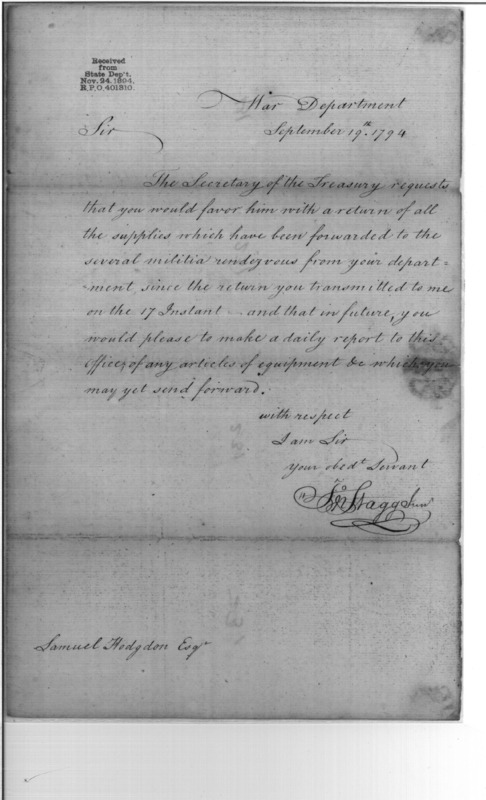 Received
from
State Dep't.
Nov. 24, 1894,
R.P.O. 401310.
War Department
Sir
September 19th. 1794
The Secretary of the Treasury requests
that you would favor him with a return of all
the supplies which have been forwarded to the
several militia rendezvous from your depart=
ment since the return you transmitted to me
on the 17 Instant — and that in future, you
would please to make a daily report to this
Office, of any articles of equipment &c which you
may yet send forward.
with respect
I am Sir
Your obedt Servant
Jno Stagg Junr
Samuel Hodgdon Esqr